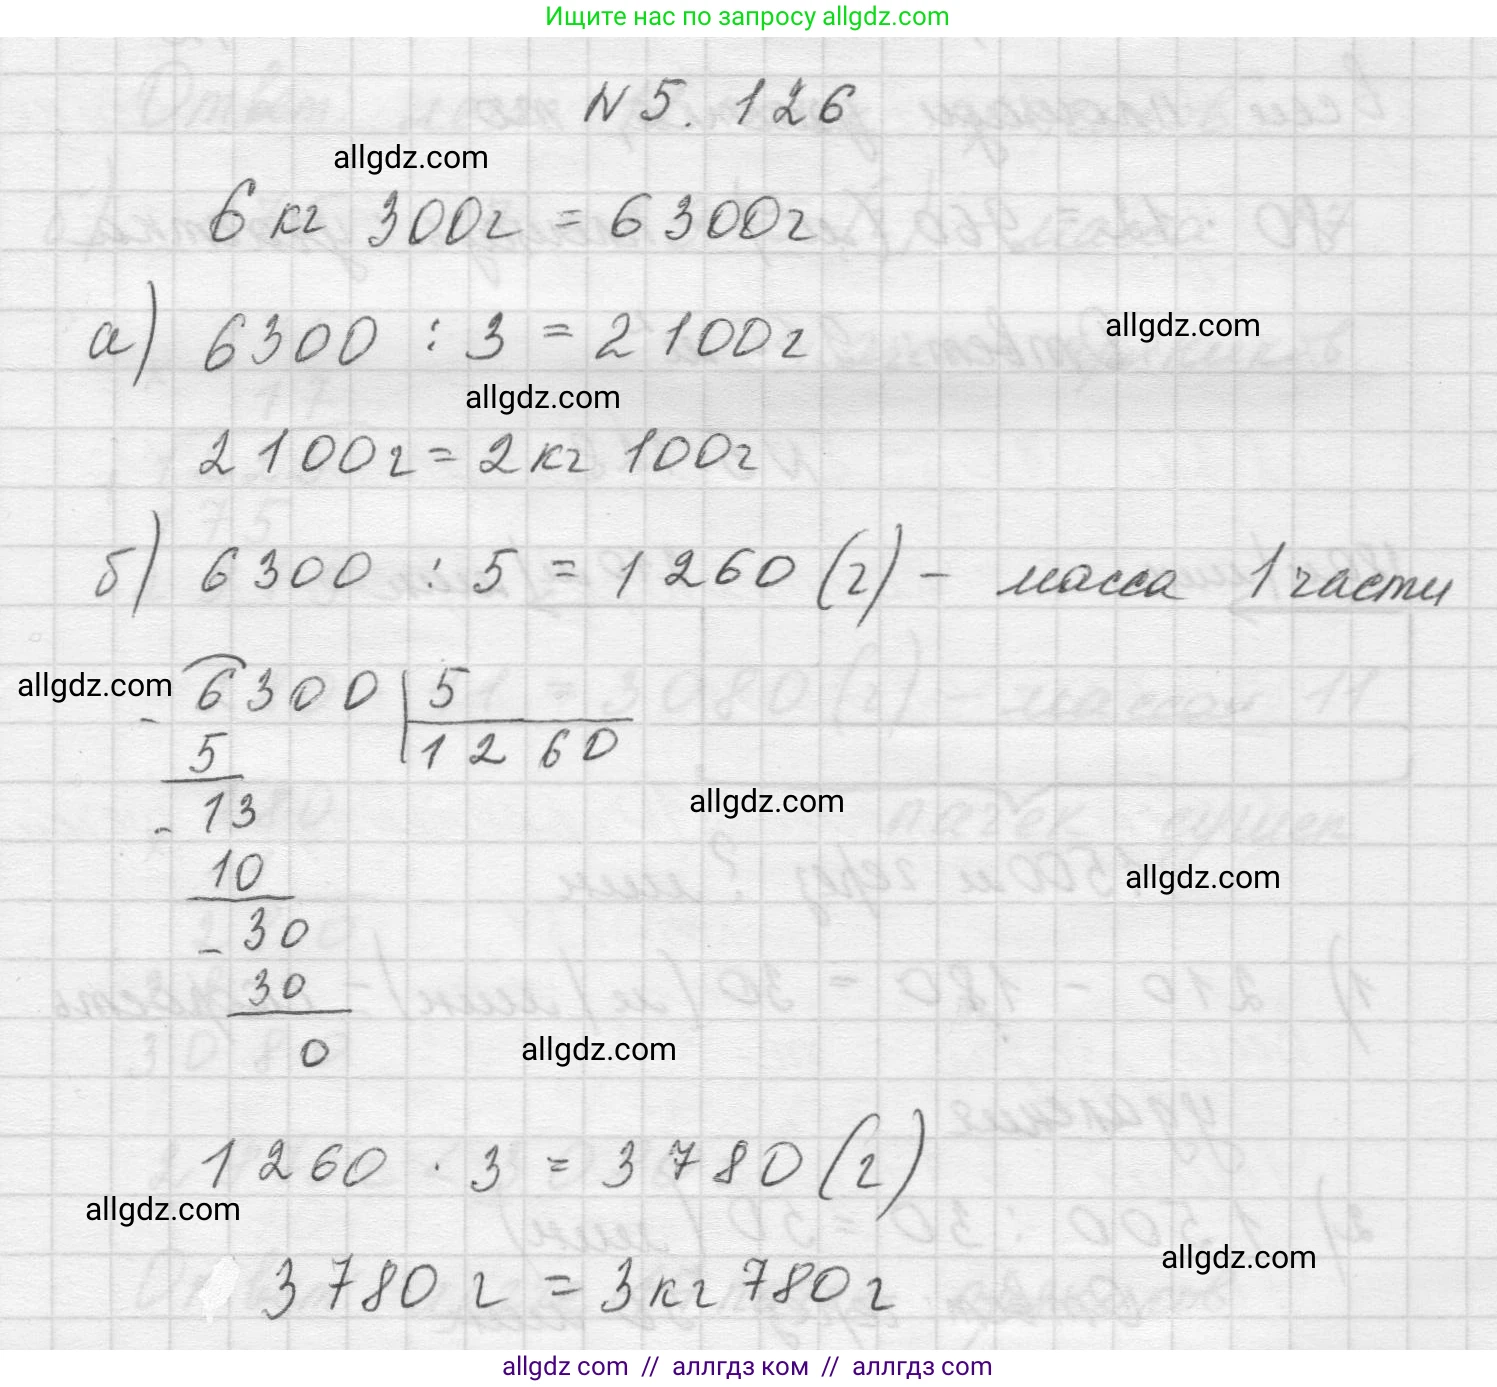 Ищите нас по запросу allgdz.com
N 5. 126
allgdz.com
6 кг 300г = 6300г
а) 6300 : 3 = 2100г
allgdz.com
allgdz.com
2100г = 2кг 100г
б) 6300 : 5 = 1260 (г) - масса 1 части
allgdz.com
- 6300 | 5
5 | 1260
allgdz.com
- 13
10
allgdz.com
- 30
30
0
allgdz.com
1260 · 3 = 3780 (г)
allgdz.com
allgdz.com
3780 г = 3кг 780г
allgdz com // аллгдз ком // allgdz com